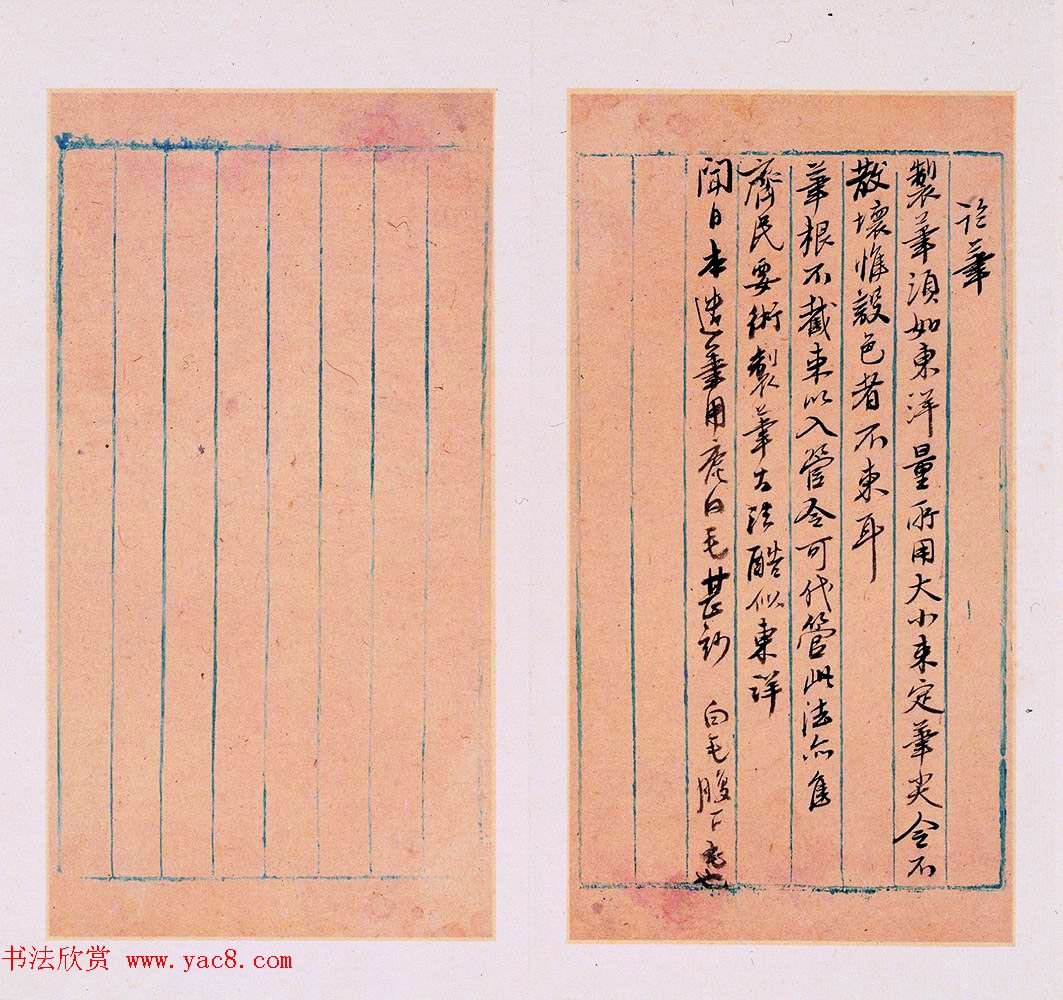 论筆
製筆須如東洋量所用大小束定筆尖令不
散壞惟設色者不束耳
筆根不截束以入管令可代管此法亦佳
齊民要術製筆古法酷似東洋
聞日本造筆用鹿白毛甚妙 白毛腹下毛也
书法欣赏 www.yac8.com